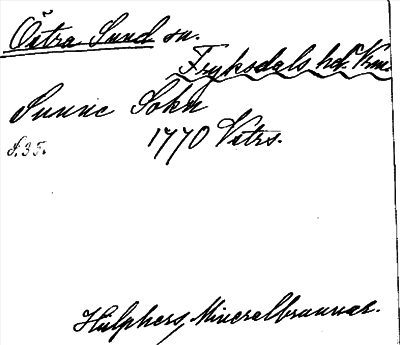 Östra Sund sn.
Fryksdals hd. Vrm.
Sunne Sokn
S. 35. 1770 Vstrs.
Hülphers, Mineralbrunnar.